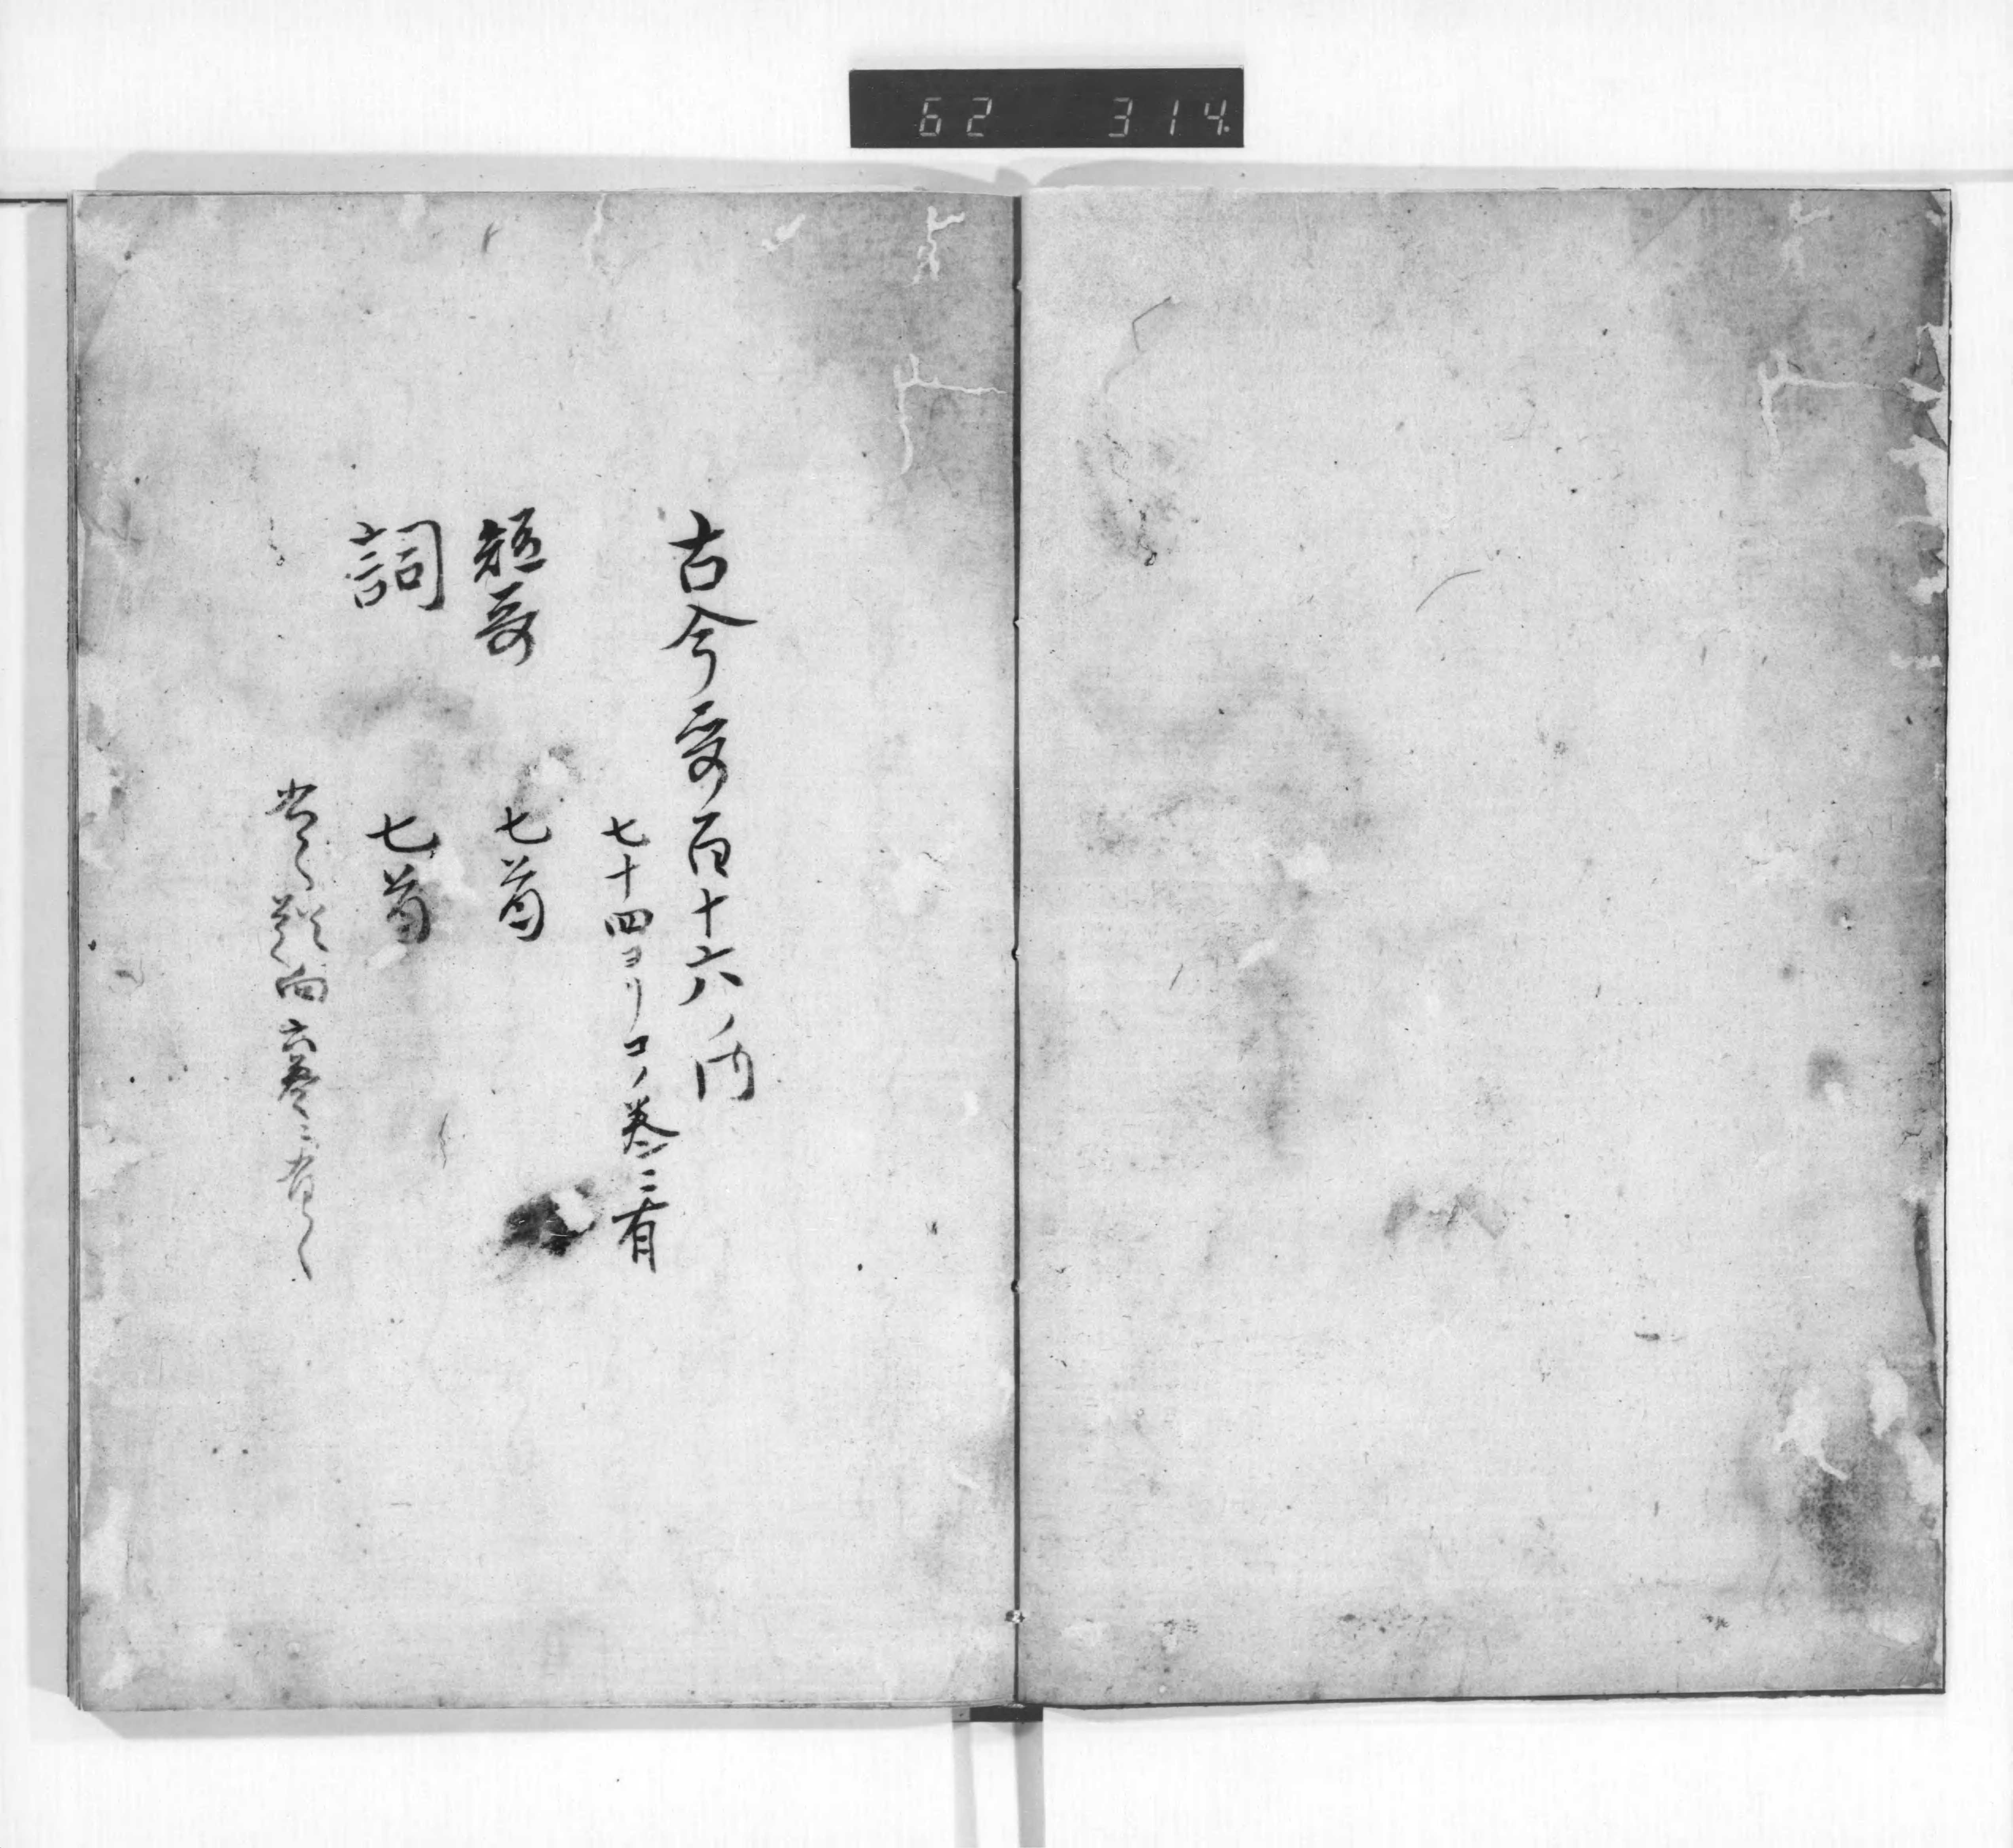 62 314
古今哥百十六ノ内
七十四ヨリコノ巻ニ有
短哥 七首
詞 七首
六巻ニ有